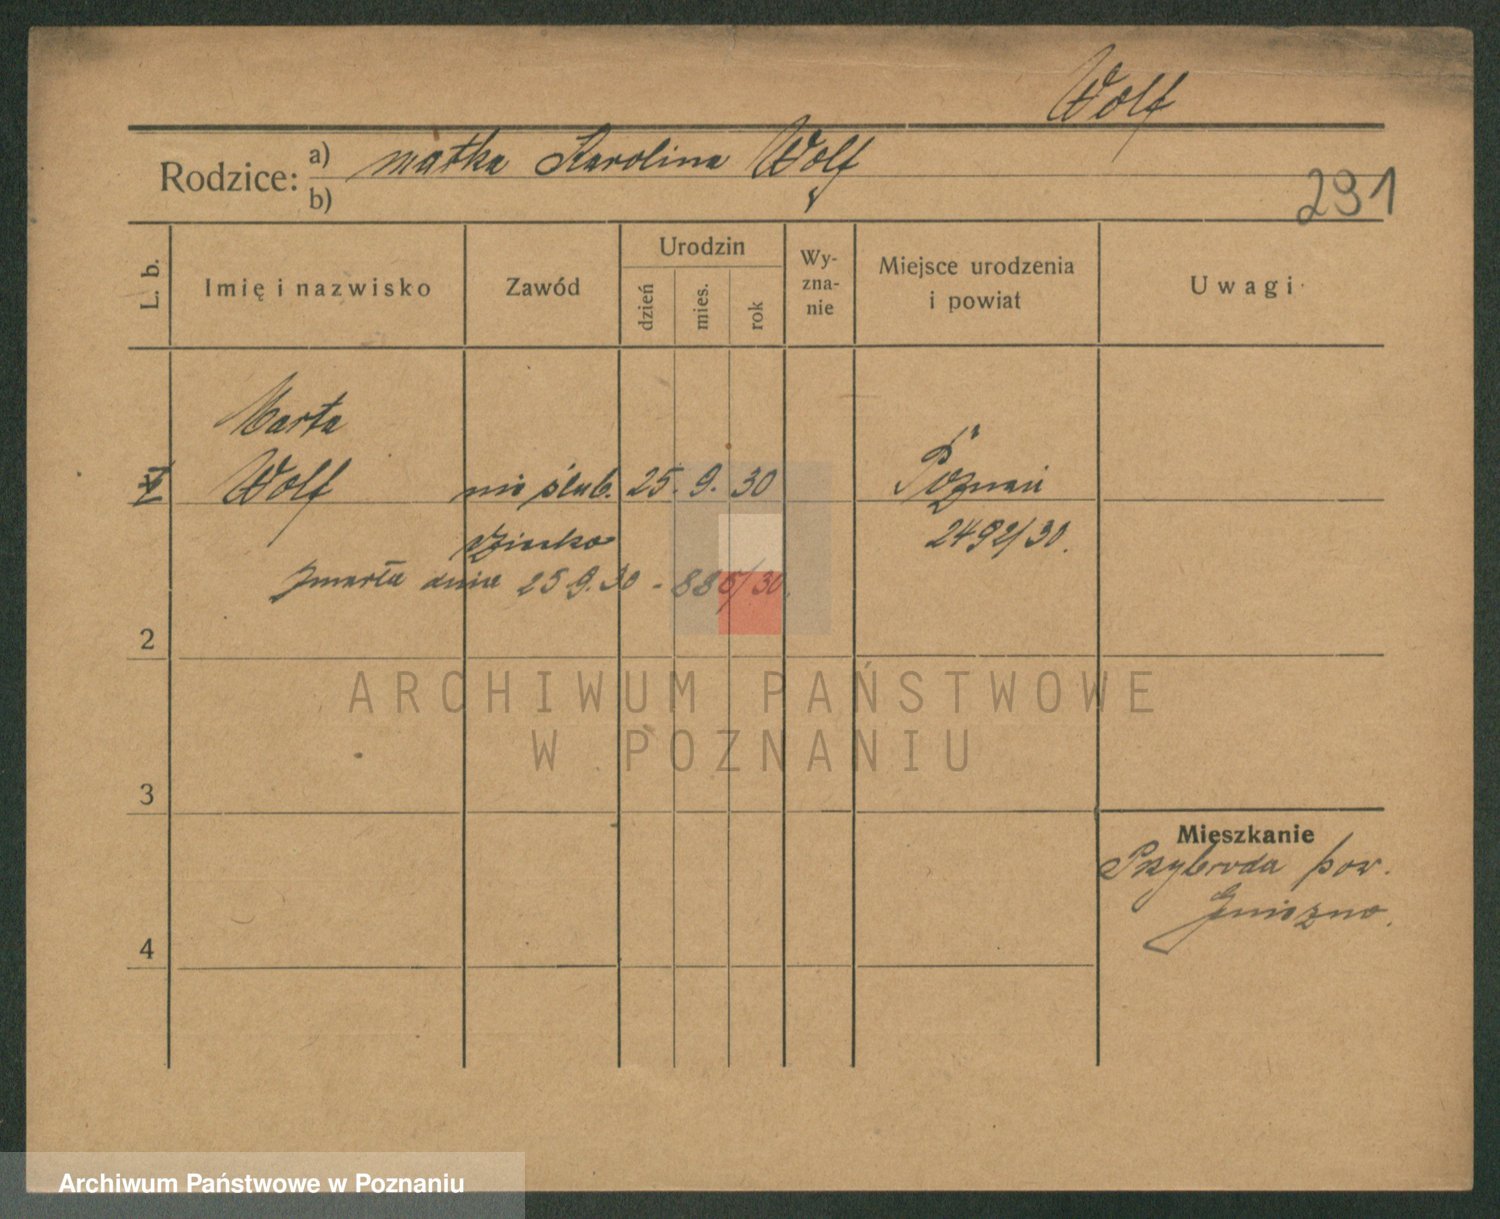 Wolf
Rodzice: a) matka Karolina Wolf
b)
291
L. b.
Imię i nazwisko
Zawód
Urodzin
dzień
mies.
rok
Wy-
zna-
nie
Miejsce urodzenia
i powiat
Uwagi
Marta
Wolf nieślub. 25. 9. 30 Poznań
dziecko 2492/30.
zmarła dnia 25 9. 30 - 885/30.
2
3
4
Mieszkanie
Przybroda pow.
Gniezno.
ARCHIWUM PAŃSTWOWE
W POZNANIU
Archiwum Państwowe w Poznaniu